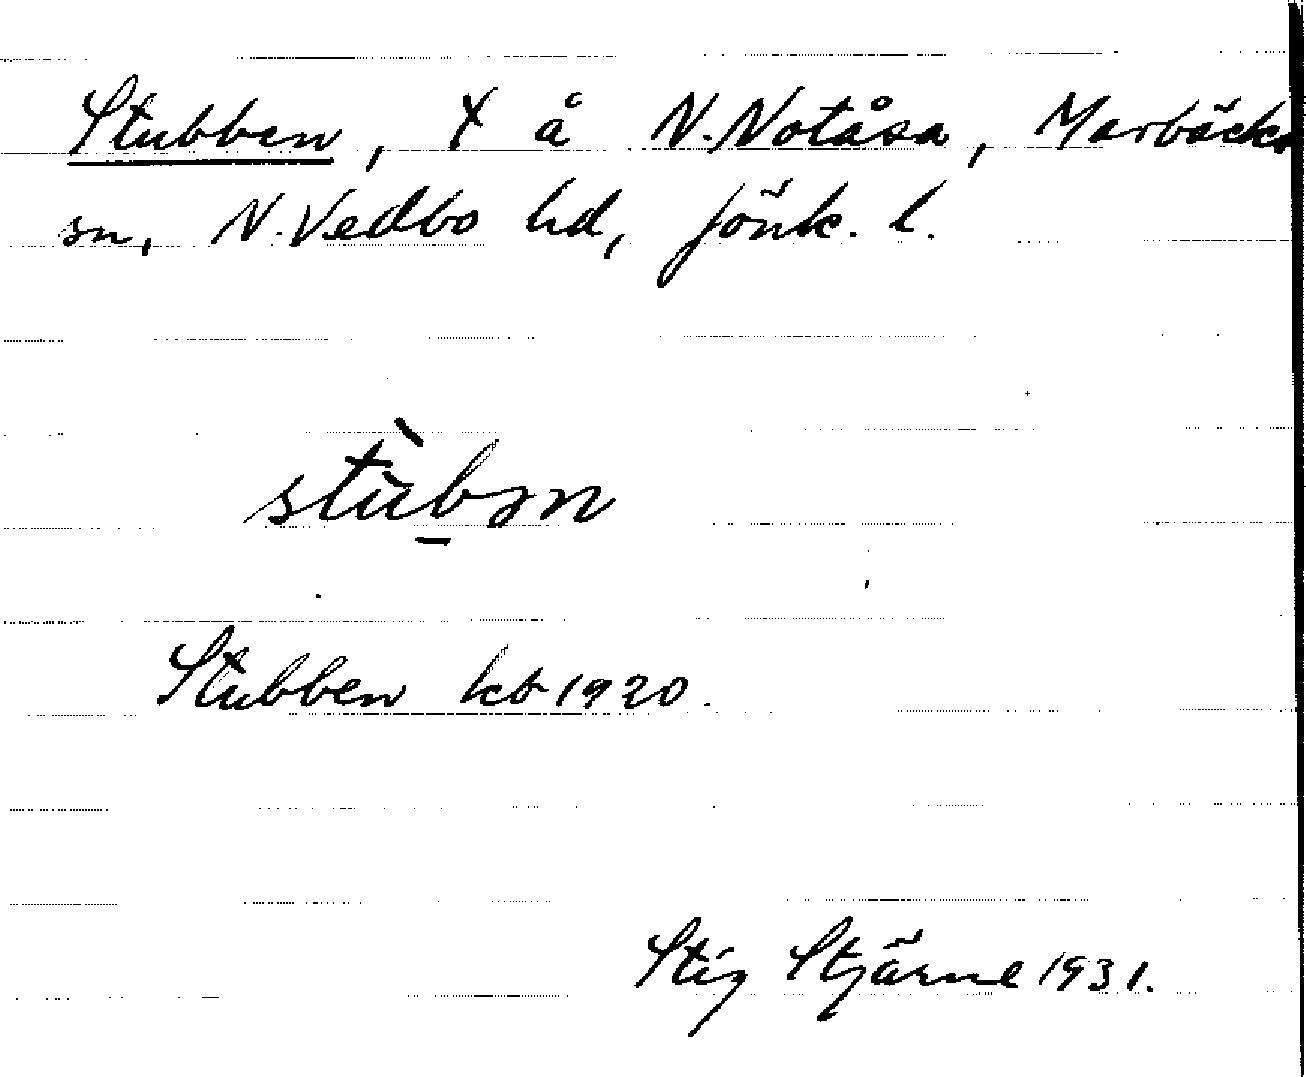 Stubben, † å N. Notåsa, Marbäcks
sn, N. Vedbo hd, Jönk. l.
stùbən
Stubben kb 1920.
Stig Stjärne 1931.